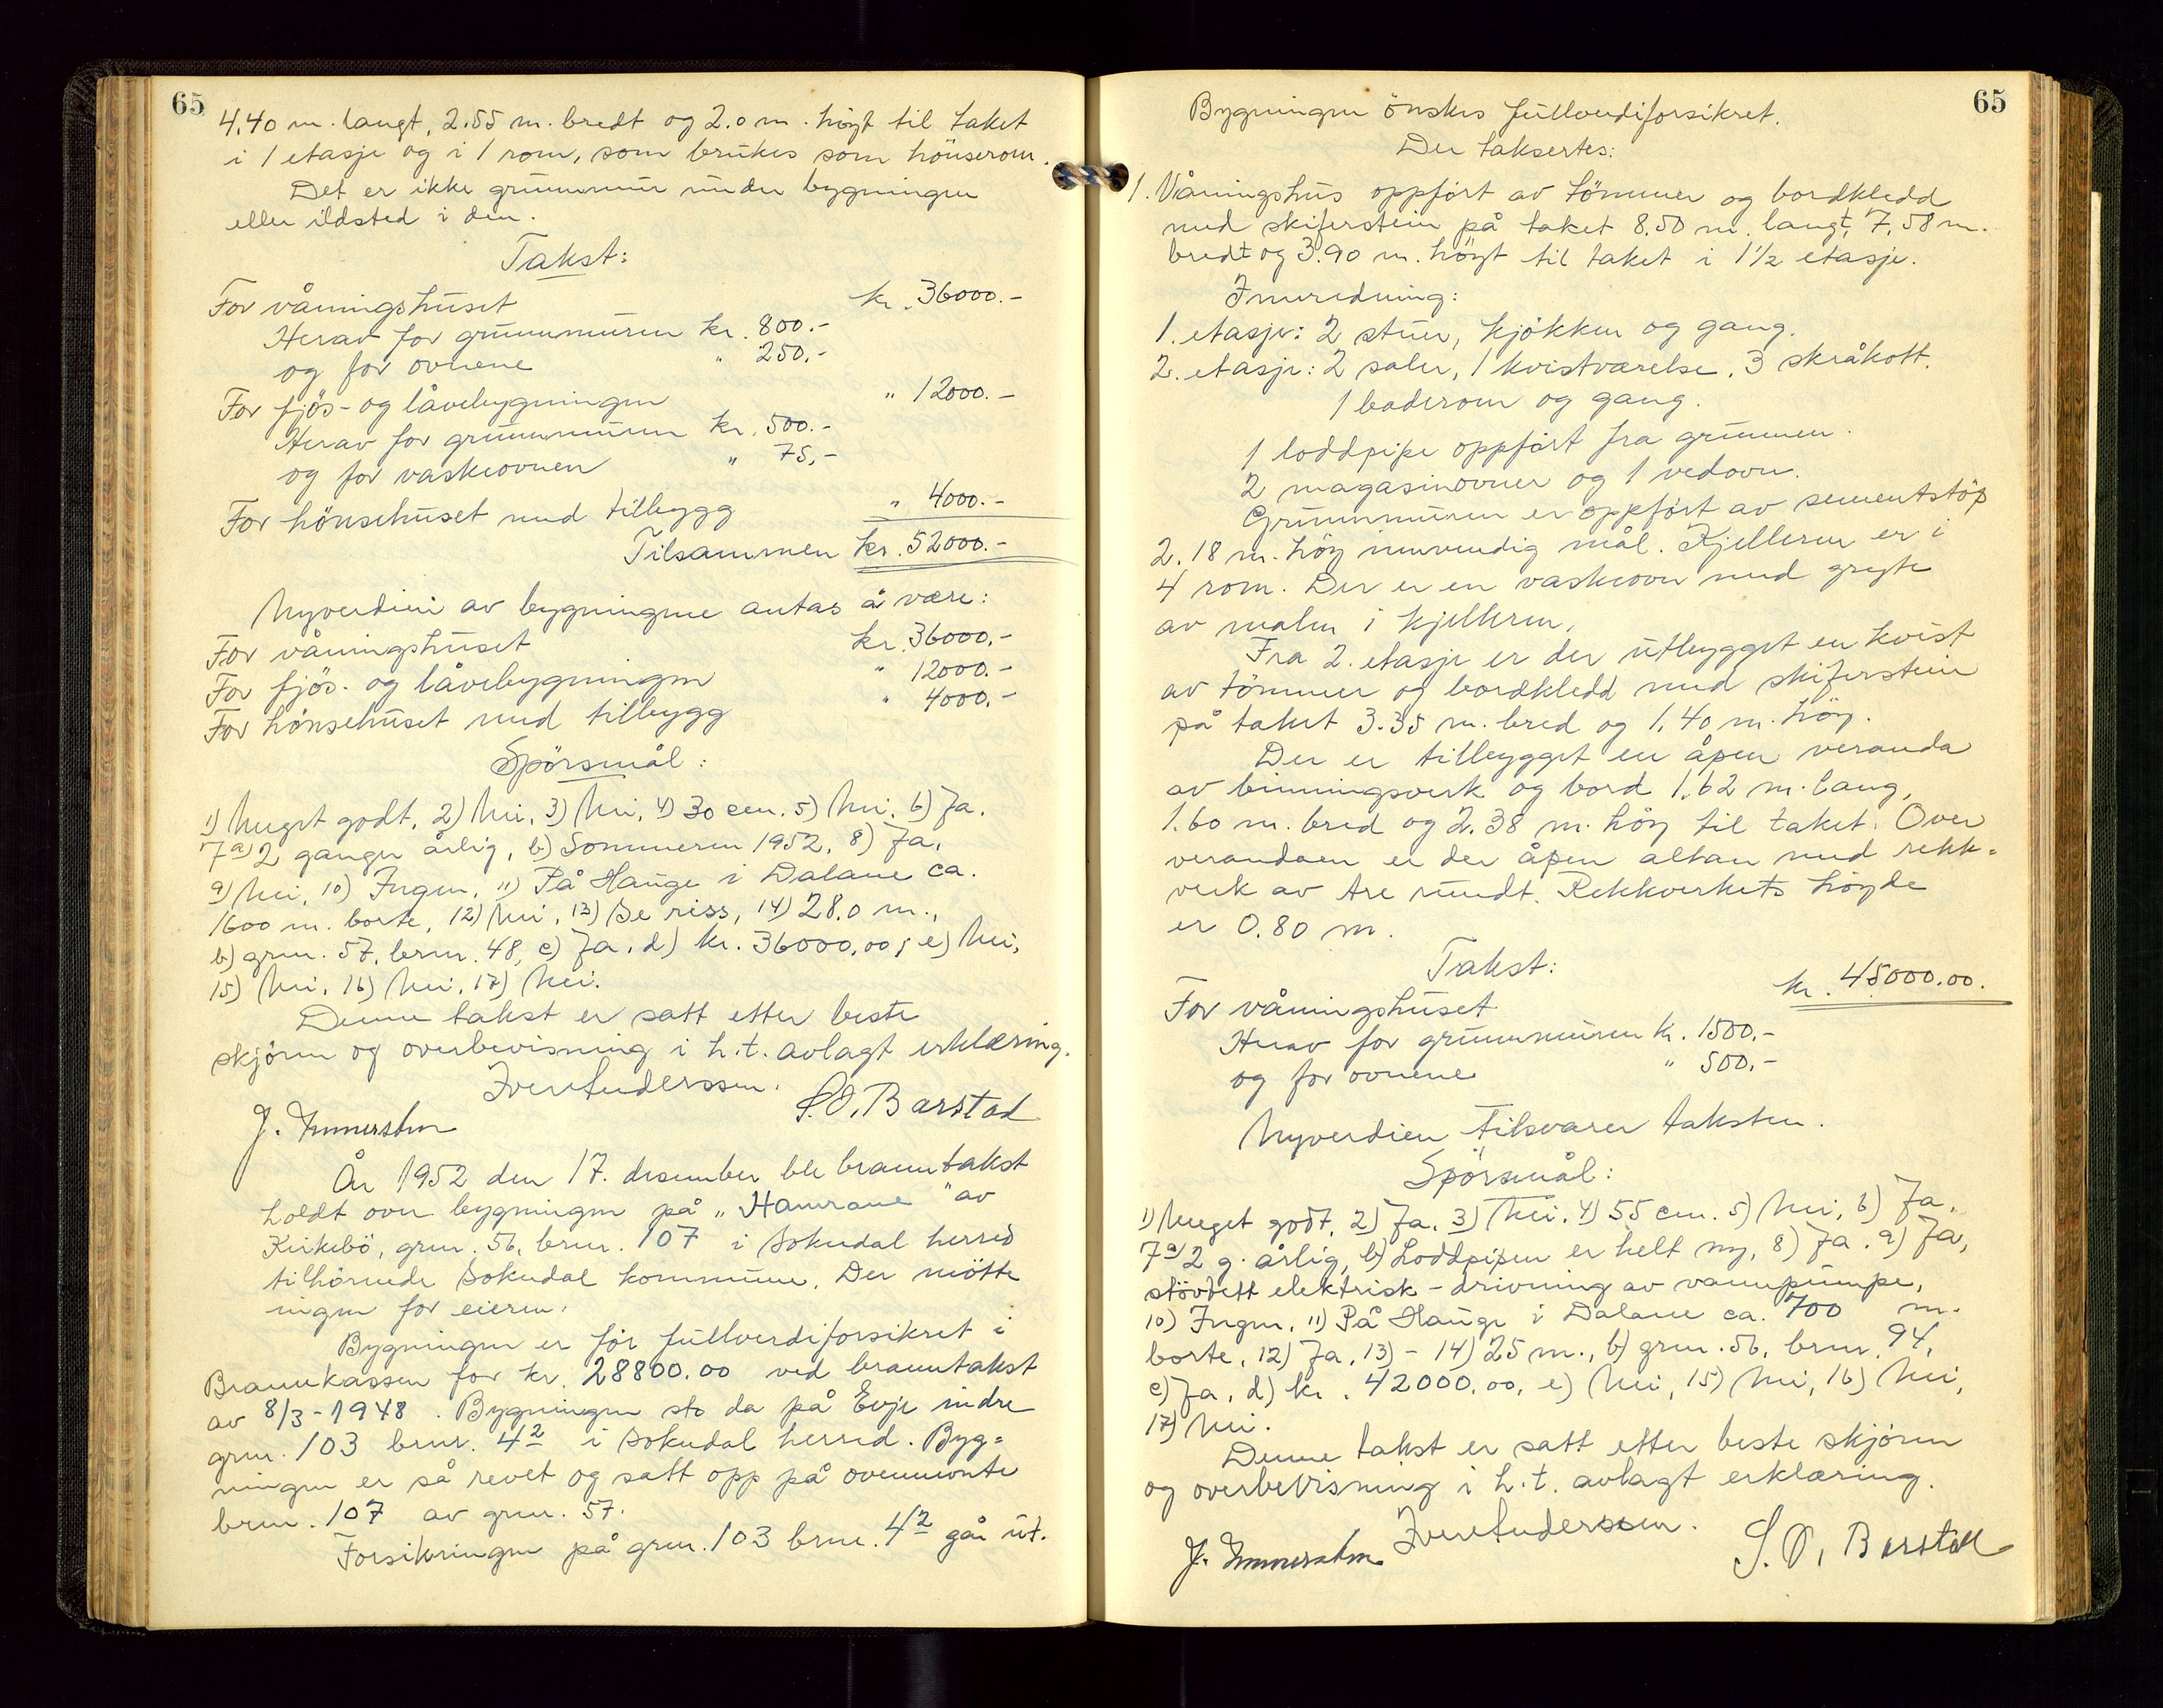 65
4.40 m. langt, 2.55 m. bredt og 2.0 m. högt til taket
i 1 etasje og i 1 rom, som brukes som hönserom.
Det er ikke grunnmur under bygningen
eller ildsted i den.
Takst:
For våningshuset kr. 36000.-
Herav for grunnmuren kr. 800.-
og for ovnene " 250.-
For fjös- og låvebygningen " 12000.-
Herav for grunnmuren kr. 500.-
og for vaskeovnen " 75,-
For hönsehuset med tilbygg " 4000.-
Tilsammen kr. 52000.-
Nyverdien av bygningene antas å være:
For våningshuset kr. 36000.-
For fjös- og låvebygningen " 12000.-
For hönsehuset med tilbygg " 4000.-
Spörsmål:
1) Meget godt, 2) Nei, 3) Nei, 4) 30 cm. 5) Nei, 6) Ja.
7a) 2 ganger årlig, b) Sommeren 1952, 8) Ja,
9) Nei, 10) Ingen, 11) På Hauge i Dalane ca.
1600 m. borte, 12) Nei, 13) Se riss, 14) 28.0 m.,
b) grnr. 57, brnr. 48, c) Ja, d) kr. 36000,00, e) Nei,
15) Nei, 16) Nei, 17) Nei.
Denne takst er satt etter beste
skjönn og overbevisning i h.t. avlagt erklæring.
Iver Anderssen. S. O. Barstad
J.
År 1952 den 17. desember ble branntakst
holdt over bygningen på „Hamrane" av
Kirkebö, grnr. 56, brnr. 107 i Sokndal herred
tilhörende Sokndal kommune. Der mötte
ingen for eieren.
Bygningen er för fullverdiforsikret i
Brannkassen for kr. 28800.00 ved branntakst
av 8/3-1948. Bygningen sto da på Evje indre
grnr. 103 brnr. 42 i Sokndal herred. Byg=
ningen er så revet og satt opp på ovennevnte
brnr. 107 av grnr. 57.
Forsikringen på grnr. 103 brnr. 42 går ut.
65
Bygningen önskes fullverdiforsikret.
Der taksertes:
1. Våningshus oppfört av tömmer og bordkledd
med skiferstein på taket 8.50 m. langt, 7,58 m.
bredt og 3.90 m. högt til taket i 1 1/2 etasje.
Innredning:
1. etasje: 2 stuer, kjökken og gang.
2. etasje: 2 saler, 1 kvistværelse, 3 skråkott.
1 baderom og gang.
1 loddpipe oppfört fra grunnen.
2 magasinovner og 1 vedovn.
Grunnmuren er oppfört av sementstöp
2.18 m. höy innvendig mål. Kjelleren er i
4 rom. Der er en vaskeovn med gryte
av malm i kjelleren.
Fra 2. etasje er der utbygget en kvist
av tömmer og bordkledd med skiferstein
på taket 3.35 m. bred og 1.40 m. höy.
Der er tilbygget en åpen veranda
av binningsverk og bord 1.62 m. lang,
1.60 m. bred og 2.38 m. höy til taket. Over
verandaen er der åpen altan med rekk=
verk av tre rundt. Rekkverkets höyde
er 0.80 m.
Takst:
For våningshuset kr. 45000.00.
Herav for grunnmuren kr. 1500.-
og for ovnene " 500.-
Nyverdien tilsvarer taksten.
Spörsmål:
1) Meget godt, 2) Ja, 3) Nei, 4) 55 cm. 5) Nei, 6) Ja,
7a) 2 g. årlig, b) Loddpipen er helt ny, 8) Ja. 9) Ja,
stövtett elektrisk-drivning av vannpumpe,
10) Ingen, 11) På Hauge i Dalane ca. 700 m.
borte, 12) Ja, 13) - 14) 25 m., b) grnr. 56, brnr. 94,
c) Ja, d) kr. 42000.00, e) Nei, 15) Nei, 16) Nei,
17) Nei.
Denne takst er satt etter beste skjönn
og overbevisning i h.t. avlagt erklæring.
Iver Anderssen. S. O. Barstad
J.